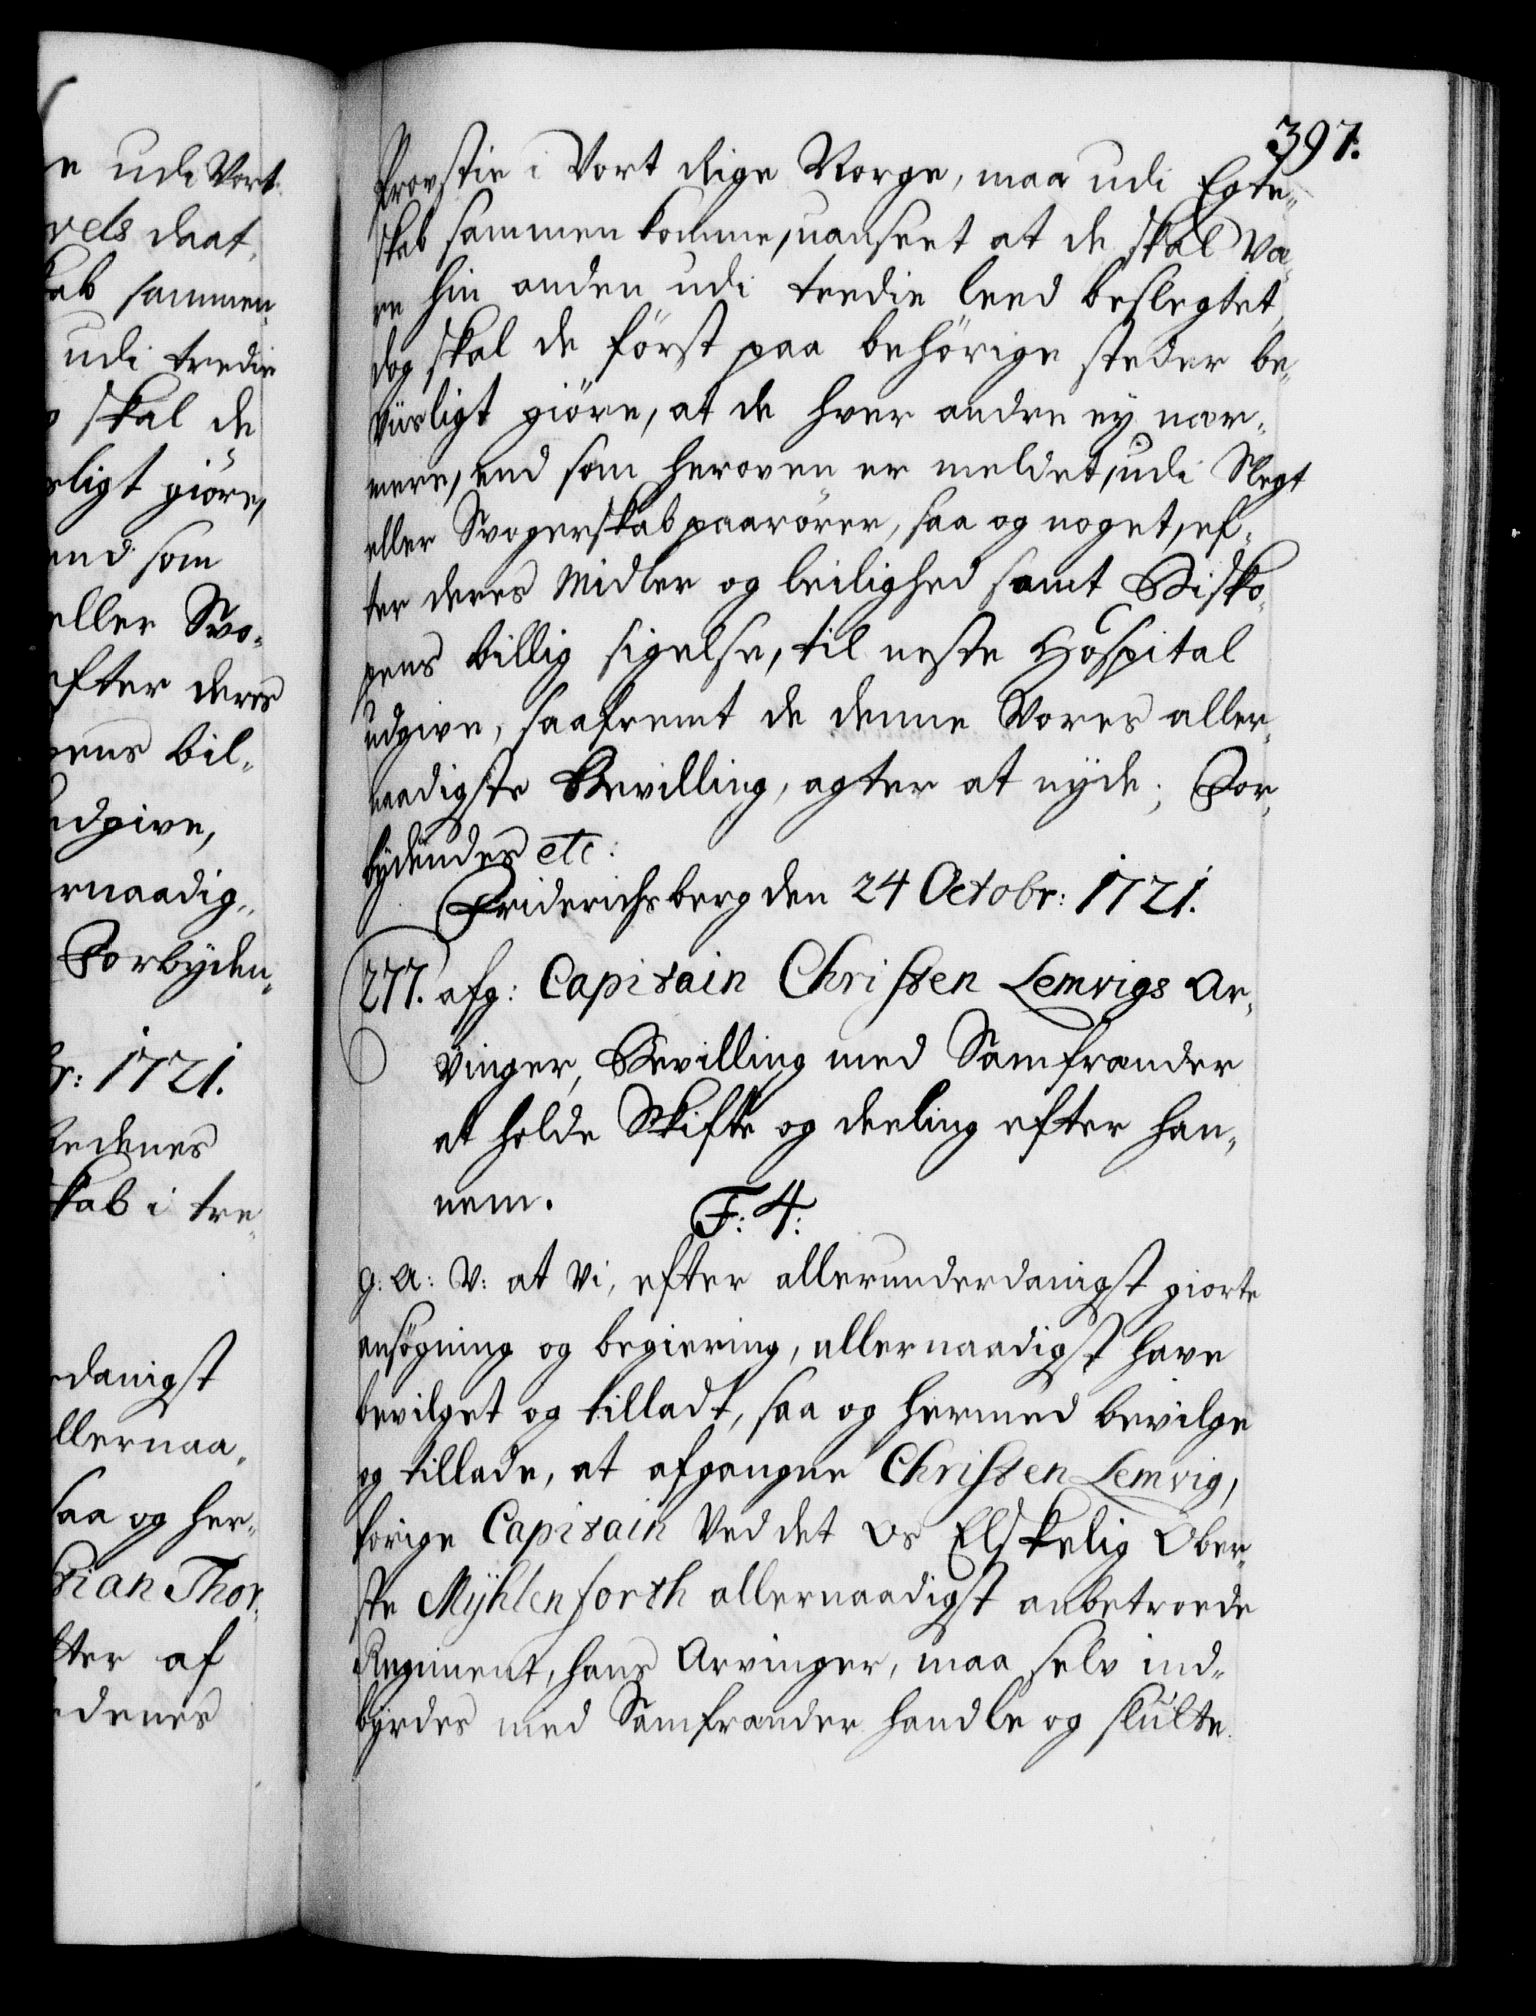 397.
Provstie i Vort Rige Norge, maa udi Egte„
skab sammenkomme, uanseet at de skal væ„
re hin anden udi tredie leed beslegtet,
dog skal de först paa behörige steder be„
viisligt giöre, at de hver andre ey nær„
mere, end som heroven er meldet, udi Slegt
eller Svogerskab paarörer, saa og noget, ef„
ter deres Midler og leilighed samt Bisko„
pens billig sigelse, til neste Hospital
udgive, saafremt de denne Vores aller„
naadigste Bevilling, agter at nyde; For„
bydendes etc:
Friderichsberg den 24 Octobr: 1721.
277. afg: Capitain Christen Lemvigs Ar„
vinger, Bevilling med Samfrænder
at holde Skifte og deeling efter han„
nem.
F: 4:
G: A: V: at Vi, efter allerunderdanigst giorte
ansögning og begiering, allernaadigst have
bevilget og tilladt, saa og hermed bevilge
og tillade, at afgangne Christen Lemvig,
forige Capitain Ved det Os Elskelig Ober„
ste Mÿhlenforth allernaadigst anbetroede
Regiment, hans Arvinger, maa selv ind„
byrdes med Samfrænder handle og slutte
e udi Vort
vels daat,
kab sammen„
udi tredie
skal de
ligt giöre,
end som
eller Svo„
efter deres
pens bil„
udgive,
rnaadig„
Forbyden„
r: 1721.
edenes
kab i tre„
danigst
llernaa„
saa og her„
tian Thor„
tter af
edenes